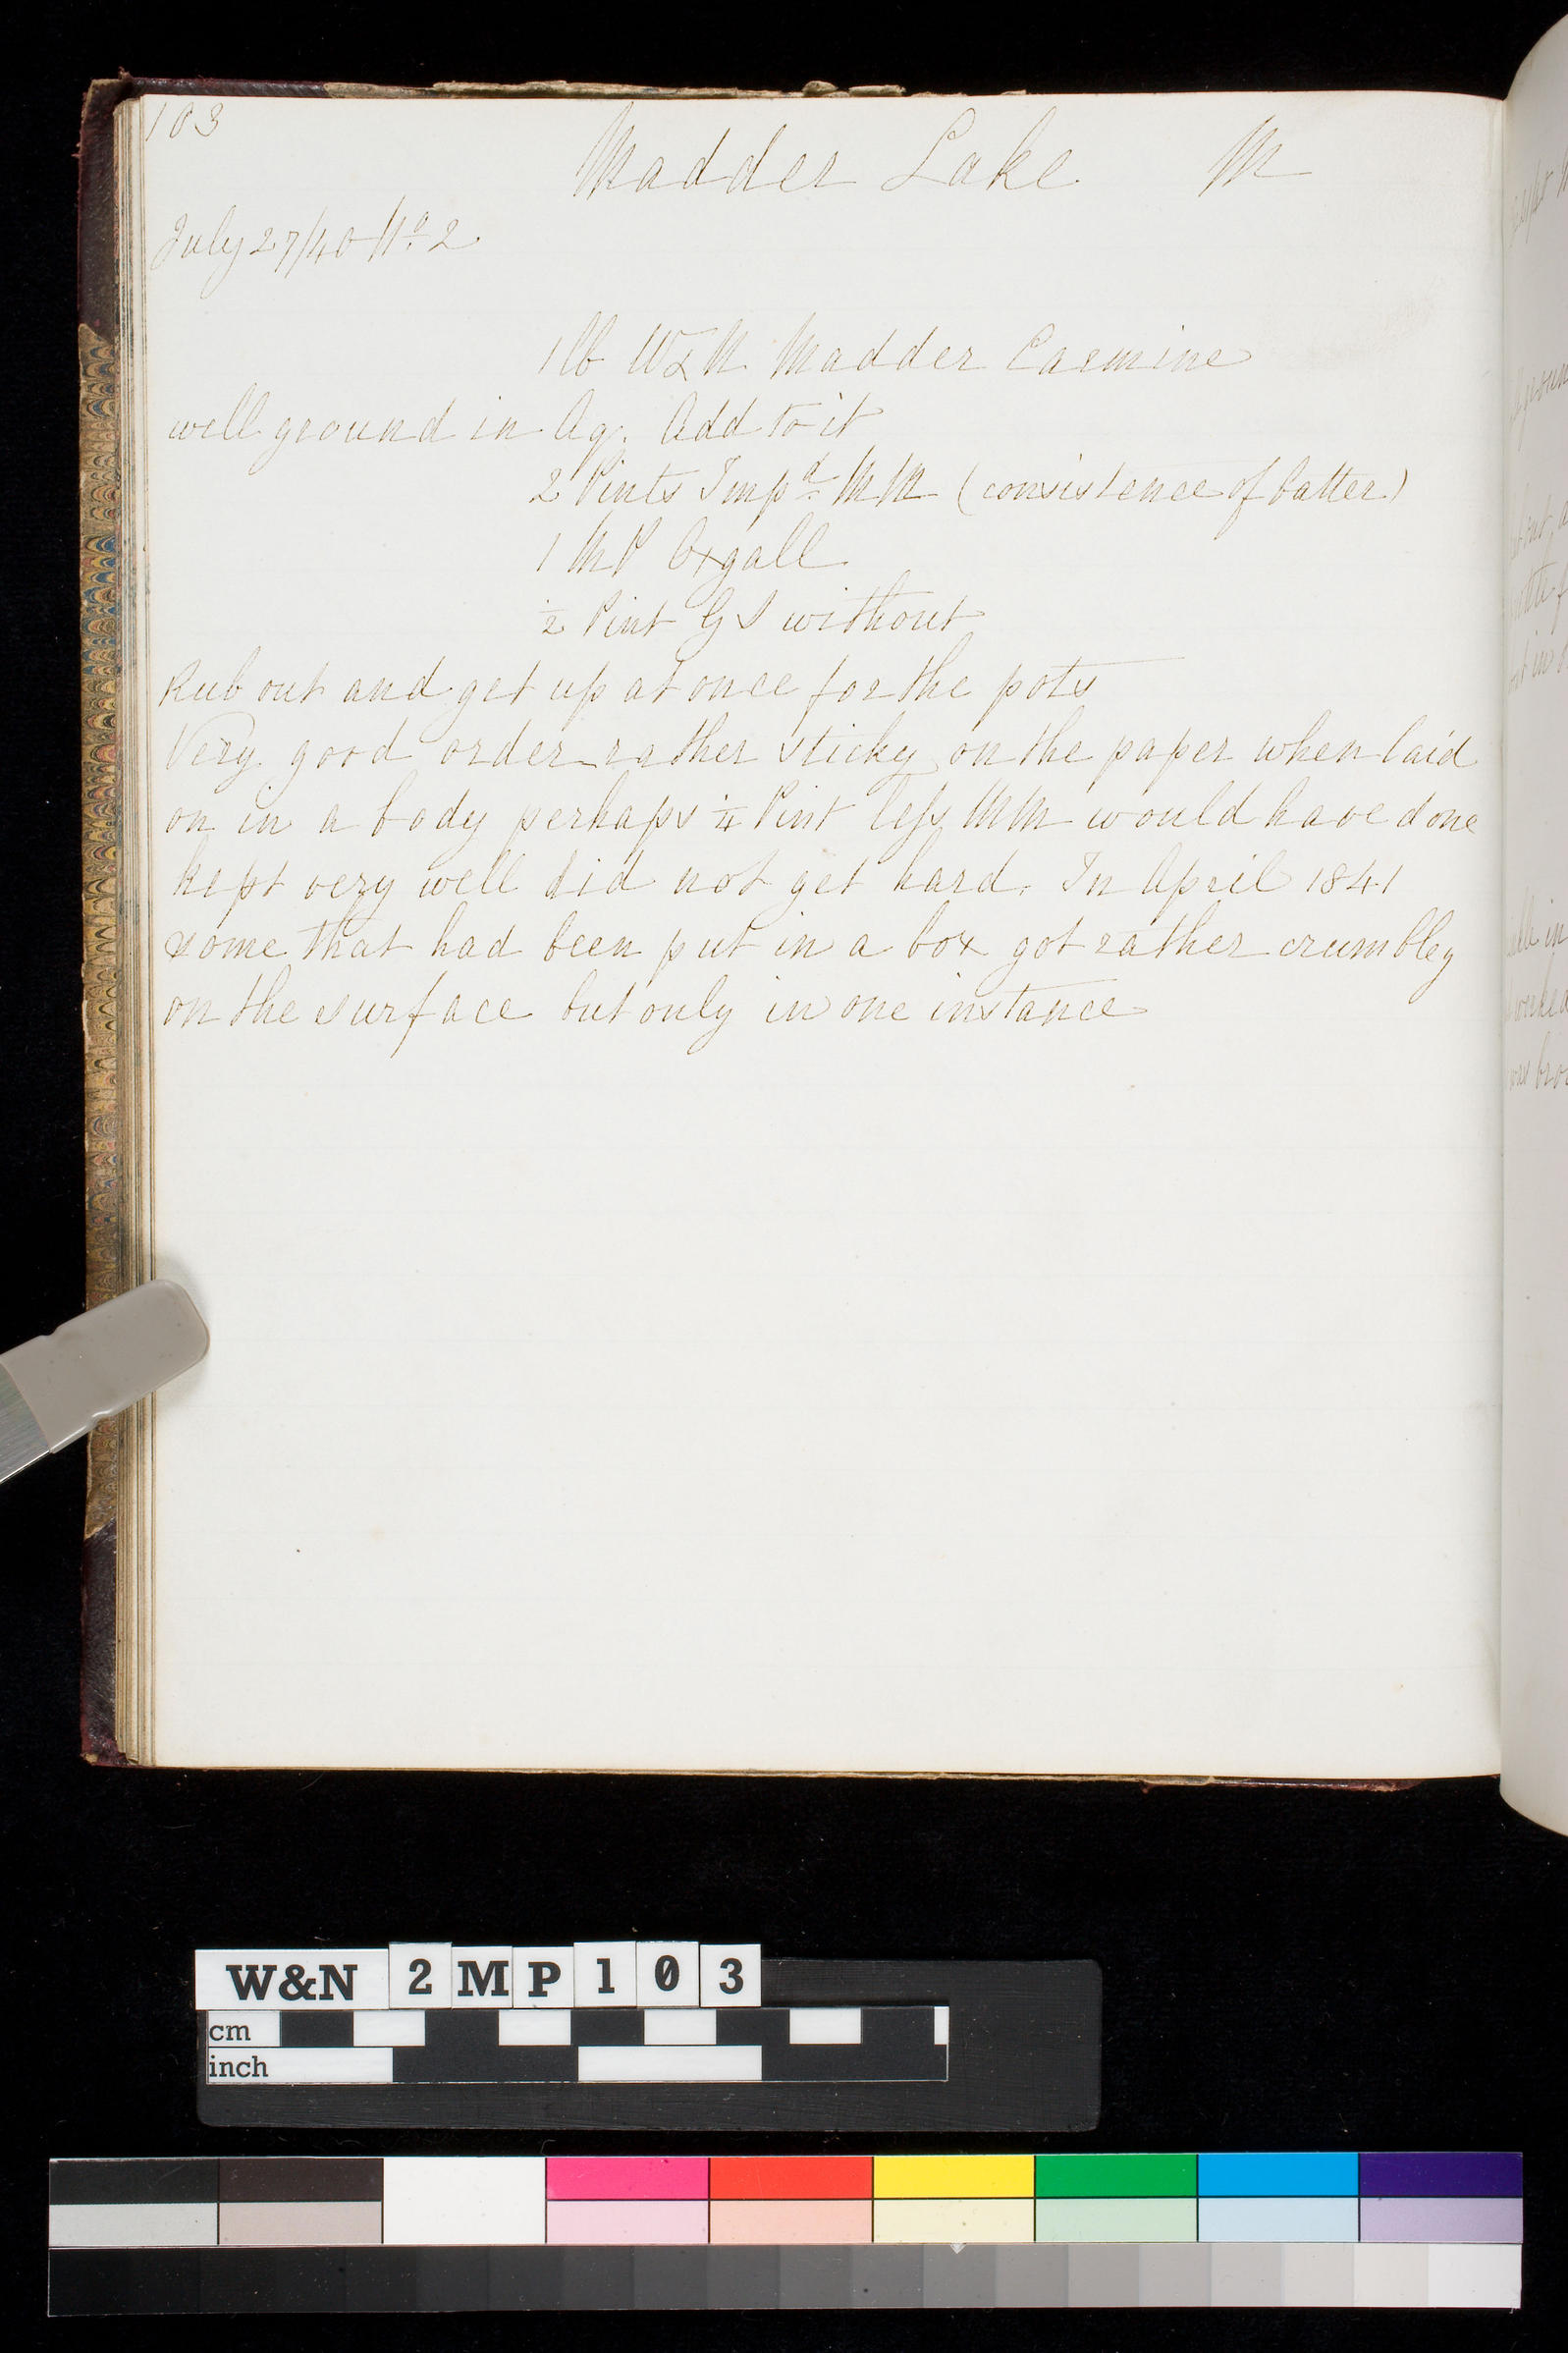 103
Madder Lake M
July 27/40 No. 2
1 lb W & N Madder Carmine
well ground in Aq. Add to it
2 Pints Impd MM (consistence of batter)
1 MP Oxgall
1/2 Pint GS without
Rub out and get up at once for the pots
Very good order rather sticky on the paper when laid
on in a body perhaps 1/4 Pint less MM would have done
kept very well did not get hard. In April 1841
some that had been put in a box got rather crumbley
on the surface but only in one instance
W&N 2MP103
cm
inch